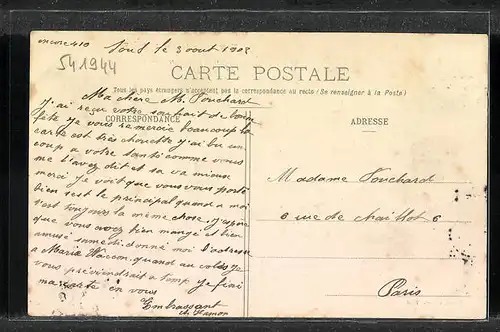 encore 410
le 3 aout 1902
541944
CARTE POSTALE
Tous les pays étrangers n'acceptent pas la correspondance au recto (Se renseigner à la Poste)
Ma chère M. Pouchard
j'ai reçu votre souhait de bonne
CORRESPONDANCE
ADRESSE
fête je vous remercie beaucoup la
carte est très chouette j'ai bu un
coup a votre santé comme vous
me l'avez dit et sa va mieux
merci je voit que vous vous porté
bien s'est le principal quand a moi
s'est toujours la même chose j'espère
que vous avez bien mangé et bien
amusé samedi donné moi l'adresse
a Marie quand au colis je
vous préviendrait a temp je fini
ma carte en vous
Embrassant
Madame Pouchard
6 rue de chaillot 6
Paris